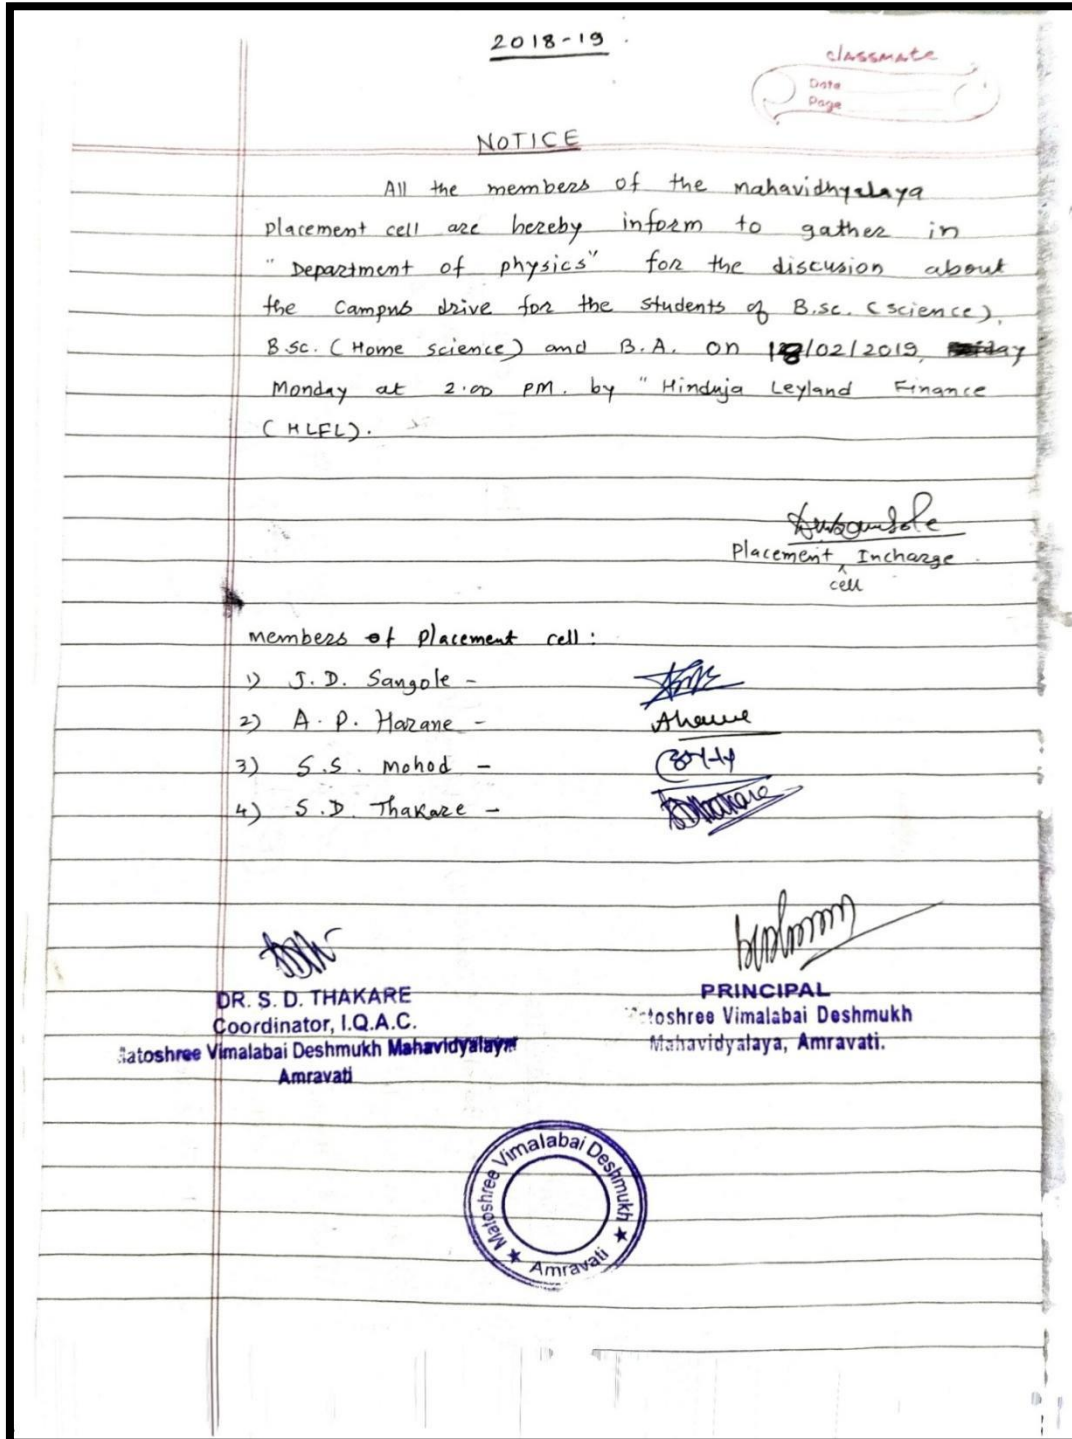 2018-19
classmate
Date
Page
NOTICE
All the members of the mahavidhyalaya
placement cell are hereby inform to gather in
"Department of physics" for the discusion about
the Campus drive for the students of B.sc. (science),
B.sc. (Home science) and B.A. on 18/02/2019,
Monday at 2:00 PM. by "Hinduja Leyland Finance
(HLFL).
Placement Incharge
cell
members of placement cell:
1) J. D. Sangole -
2) A. P. Harane - Aharne
3) S.S. mohod -
4) S.D. Thakare - SDThakare
DR. S. D. THAKARE
Coordinator, I.Q.A.C.
Matoshree Vimalabai Deshmukh Mahavidyalaya
Amravati
PRINCIPAL
Matoshree Vimalabai Deshmukh
Mahavidyalaya, Amravati.
Matoshree Vimalabai Deshmukh
★ Amravati ★